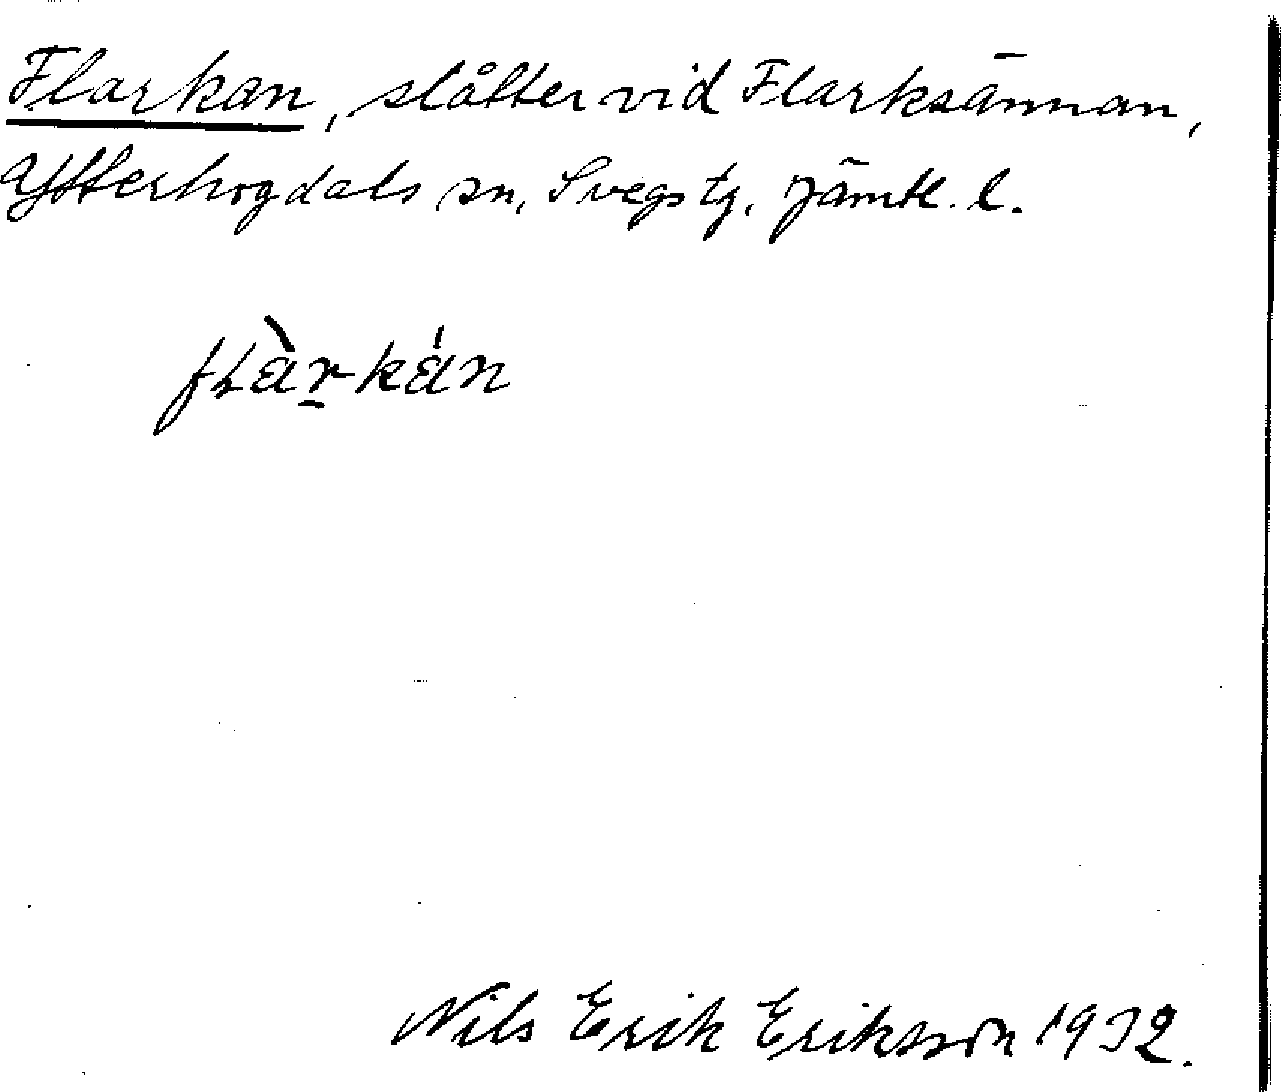 Flarkan, slåtter vid Flarksännan,
Ytterhogdals sn, Svegs tg. Jämtl. l.
fʟàr̠kán
Nils Erik Eriksson 1932.